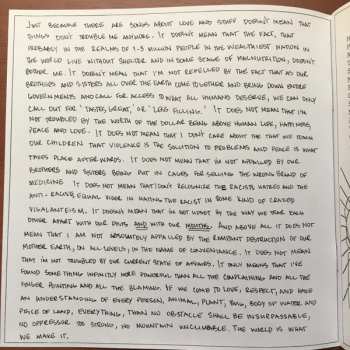 JUST BECAUSE THERE ARE SONGS ABOUT LOVE AND STUFF DOESN'T MEAN THAT
THINGS DON'T TROUBLE ME ANYMORE. IT DOESN'T MEAN THAT THE FACT, THAT
PROBABLY IN THE REALMS OF 1-3 MILLION PEOPLE IN THE WEALTHIEST NATION IN
THE WORLD LIVE WITHOUT SHELTER AND IN SOME STAGE OF MALNUTRITION, DOESN'T
BOTHER ME. IT DOESN'T MEAN THAT I'M NOT REPELLED BY THE FACT THAT AS OUR
BROTHERS AND SISTERS ALL OVER THE EARTH COME TOGETHER AND BRING DOWN ENTIRE
GOVERNMENTS, AND CALL FOR ACCESS TO WHAT ALL HUMANS DESERVE, WE CAN ONLY
CALL OUT FOR "TASTES GREAT" OR "LESS FILLING." IT DOES NOT MEAN THAT I'M
NOT TROUBLED BY THE WORTH OF THE DOLLAR BEING ABOVE HUMAN LIFE, HAPPINESS,
PEACE AND LOVE. IT DOES NOT MEAN THAT I DON'T CARE ABOUT THE THAT WE TEACH
OUR CHILDREN THAT VIOLENCE IS THE SOLUTION TO PROBLEMS AND PEACE IS WHAT
TAKES PLACE AFTERWARDS. IT DOES NOT MEAN THAT I'M NOT APPALLED BY OUR
BROTHERS AND SISTERS BEING PUT IN CAGES FOR SELLING THE WRONG BRAND OF
MEDICINE. IT DOES NOT MEAN THAT I DON'T RECOGNIZE THE RACISTS, HATRED AND THE
ANTI-RACISTS, EQUAL FLOOR IN HATING THE RACIST IN SOME KIND OF CRAZED
VIGALANTEISM. IT DOESN'T MEAN THAT I'M NOT UPSET BY THE WAY WE TEAR EACH
OTHER APART WITH OUR FISTS AND WITH OUR MOUTHS. AND ABOVE ALL IT DOES NOT
MEAN THAT I AM NOT ABSOLUTELY APPALLED BY THE RAMPANT DESTRUCTION OF OUR
MOTHER EARTH, ON ALL LEVELS, IN THE NAME OF CONVENIENCE. IT DOES NOT MEAN
THAT I'M NOT TROUBLED BY OUR CURRENT STATE OF AFFAIRS. IT ONLY MEANS THAT I'VE
FOUND SOMETHING INFINITLY MORE POWERFUL THAN ALL THE COMPLAINING AND ALL THE
FINGER POINTING AND ALL THE BLAMING. IF WE COME TO LOVE, RESPECT, AND HAVE
AN UNDERSTANDING OF EVERY PERSON, ANIMAL, PLANT, BUG, BODY OF WATER AND
PIECE OF LAND, EVERYTHING, THAN NO OBSTACLE SHALL BE INSURPASSABLE,
NO OPPRESSOR TO STRONG, NO MOUNTAIN UNCLIMBABLE. THE WORLD IS WHAT
WE MAKE IT.